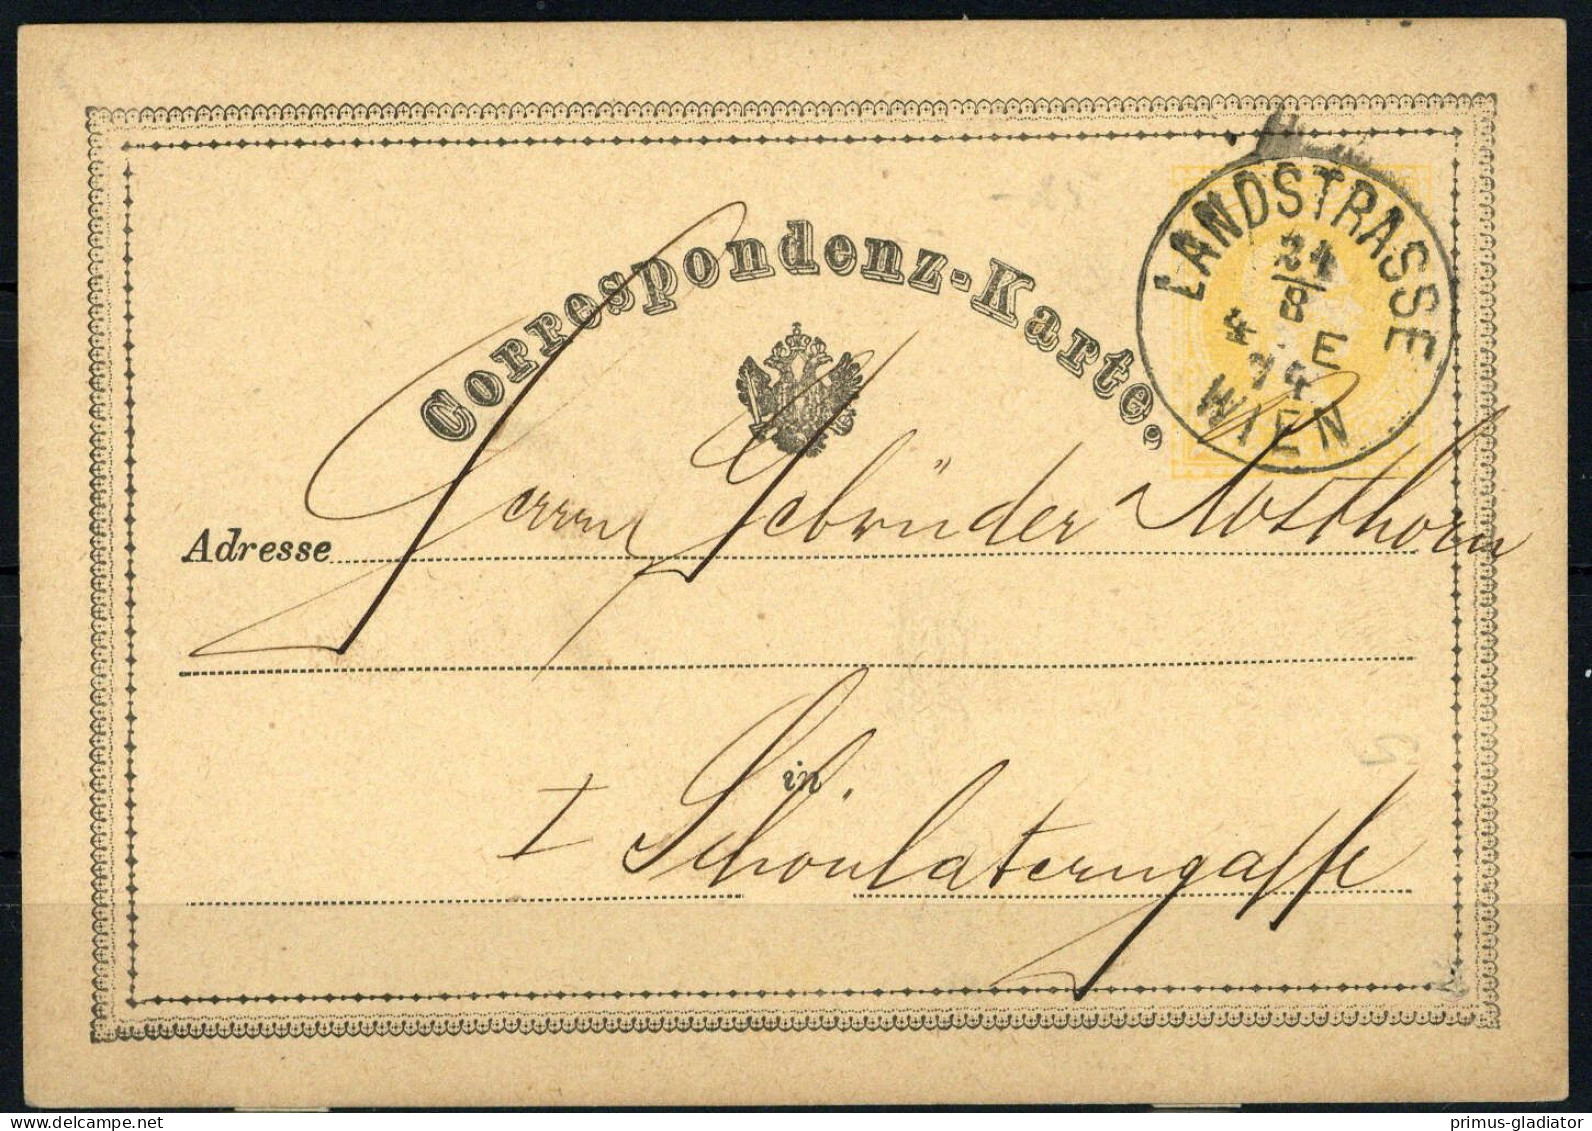 Correspondenz-Karte.
LANDSTRASSE
24
8
4 E
74
WIEN
Adresse Herrn Gebrüder Rosthorn
in
I Schönlaterngasse
primus-gladiator